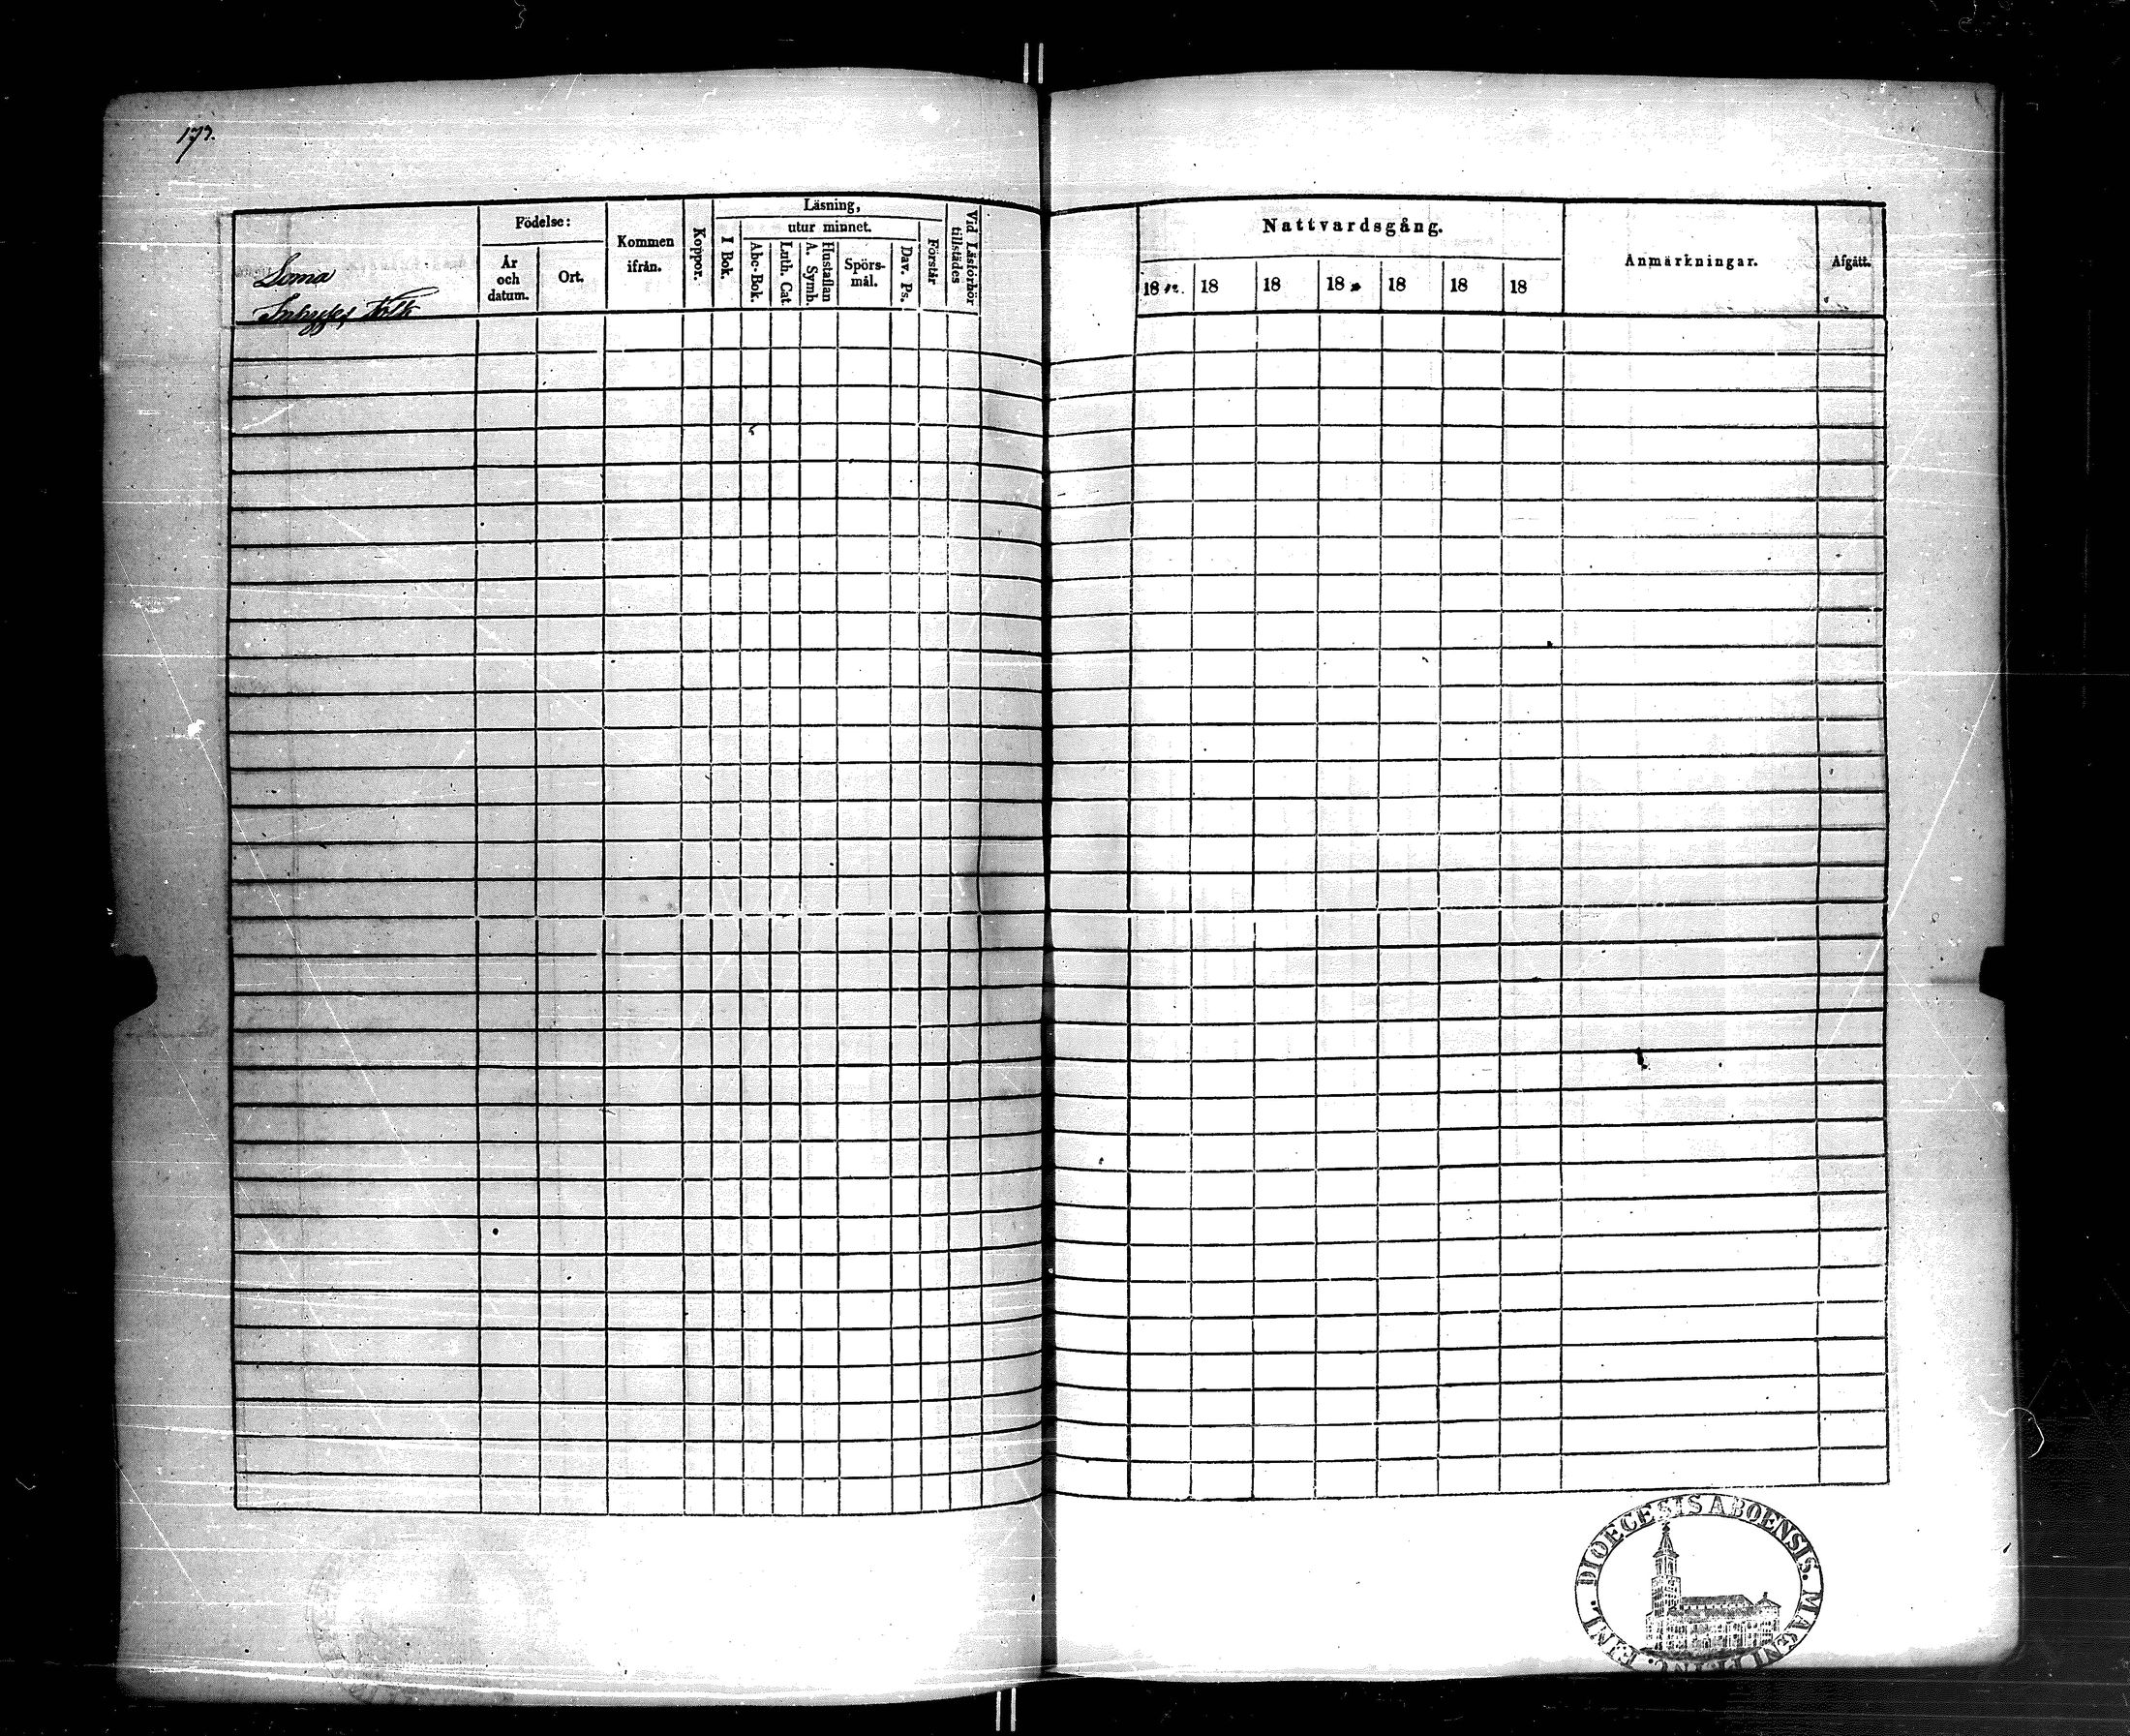 173.
Loma
Inhyses Folk
Födelse:
År
och
datum.
Ort.
Kommen
ifrån.
Koppor.
Läsning,
I Bok.
utur minnet.
Abc-Bok.
Luth. Cat.
Hustaflan
A. Symb.
Spörs-
mål.
Dav. Ps.
Förstår
Vid Läsförhör
tillstädes
Nattvardsgång.
18 18 18 18 18 18 18
Anmärkningar.
Afgått.
DIOECESIS ABOENSIS. MAGNI